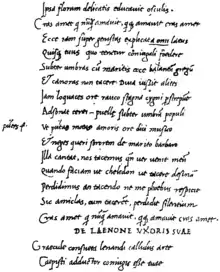 Ipsa florum delicatis educauit osculis.
Cras amet q nūq̃ amauit, q̃q amauit cras amet.
Ecce iam super genestas explicat omīs latus
Quisq; tuus quo tenetur coniugali foedere
Subter umbras cū maritis ecce balantū gregē
Et canoras non tacere Diua iussit alites
Iam loquaces ore rauco stagna cygni pstrepūt
Adsonat puella subter umbrā populi
Vt putas motus amoris ore dici musico
Et neges queri sororem de marito barbaro
Illa cantat, nos tacemus qn̄ uer uenit meum
Quando faciam ut chelidon ut tacere desinā
Perdidi tacendo nec me phoebus respicit
Sic amiclas, cum tacerent, perdidit silentium
Cras amet q nūq̃ amauit, q̃q amauit cras amet.
DE LAENONE VXORIS SVAE
Graecule consueta lenandi callidus arte
Caepisti adductor coniugis esse tuae